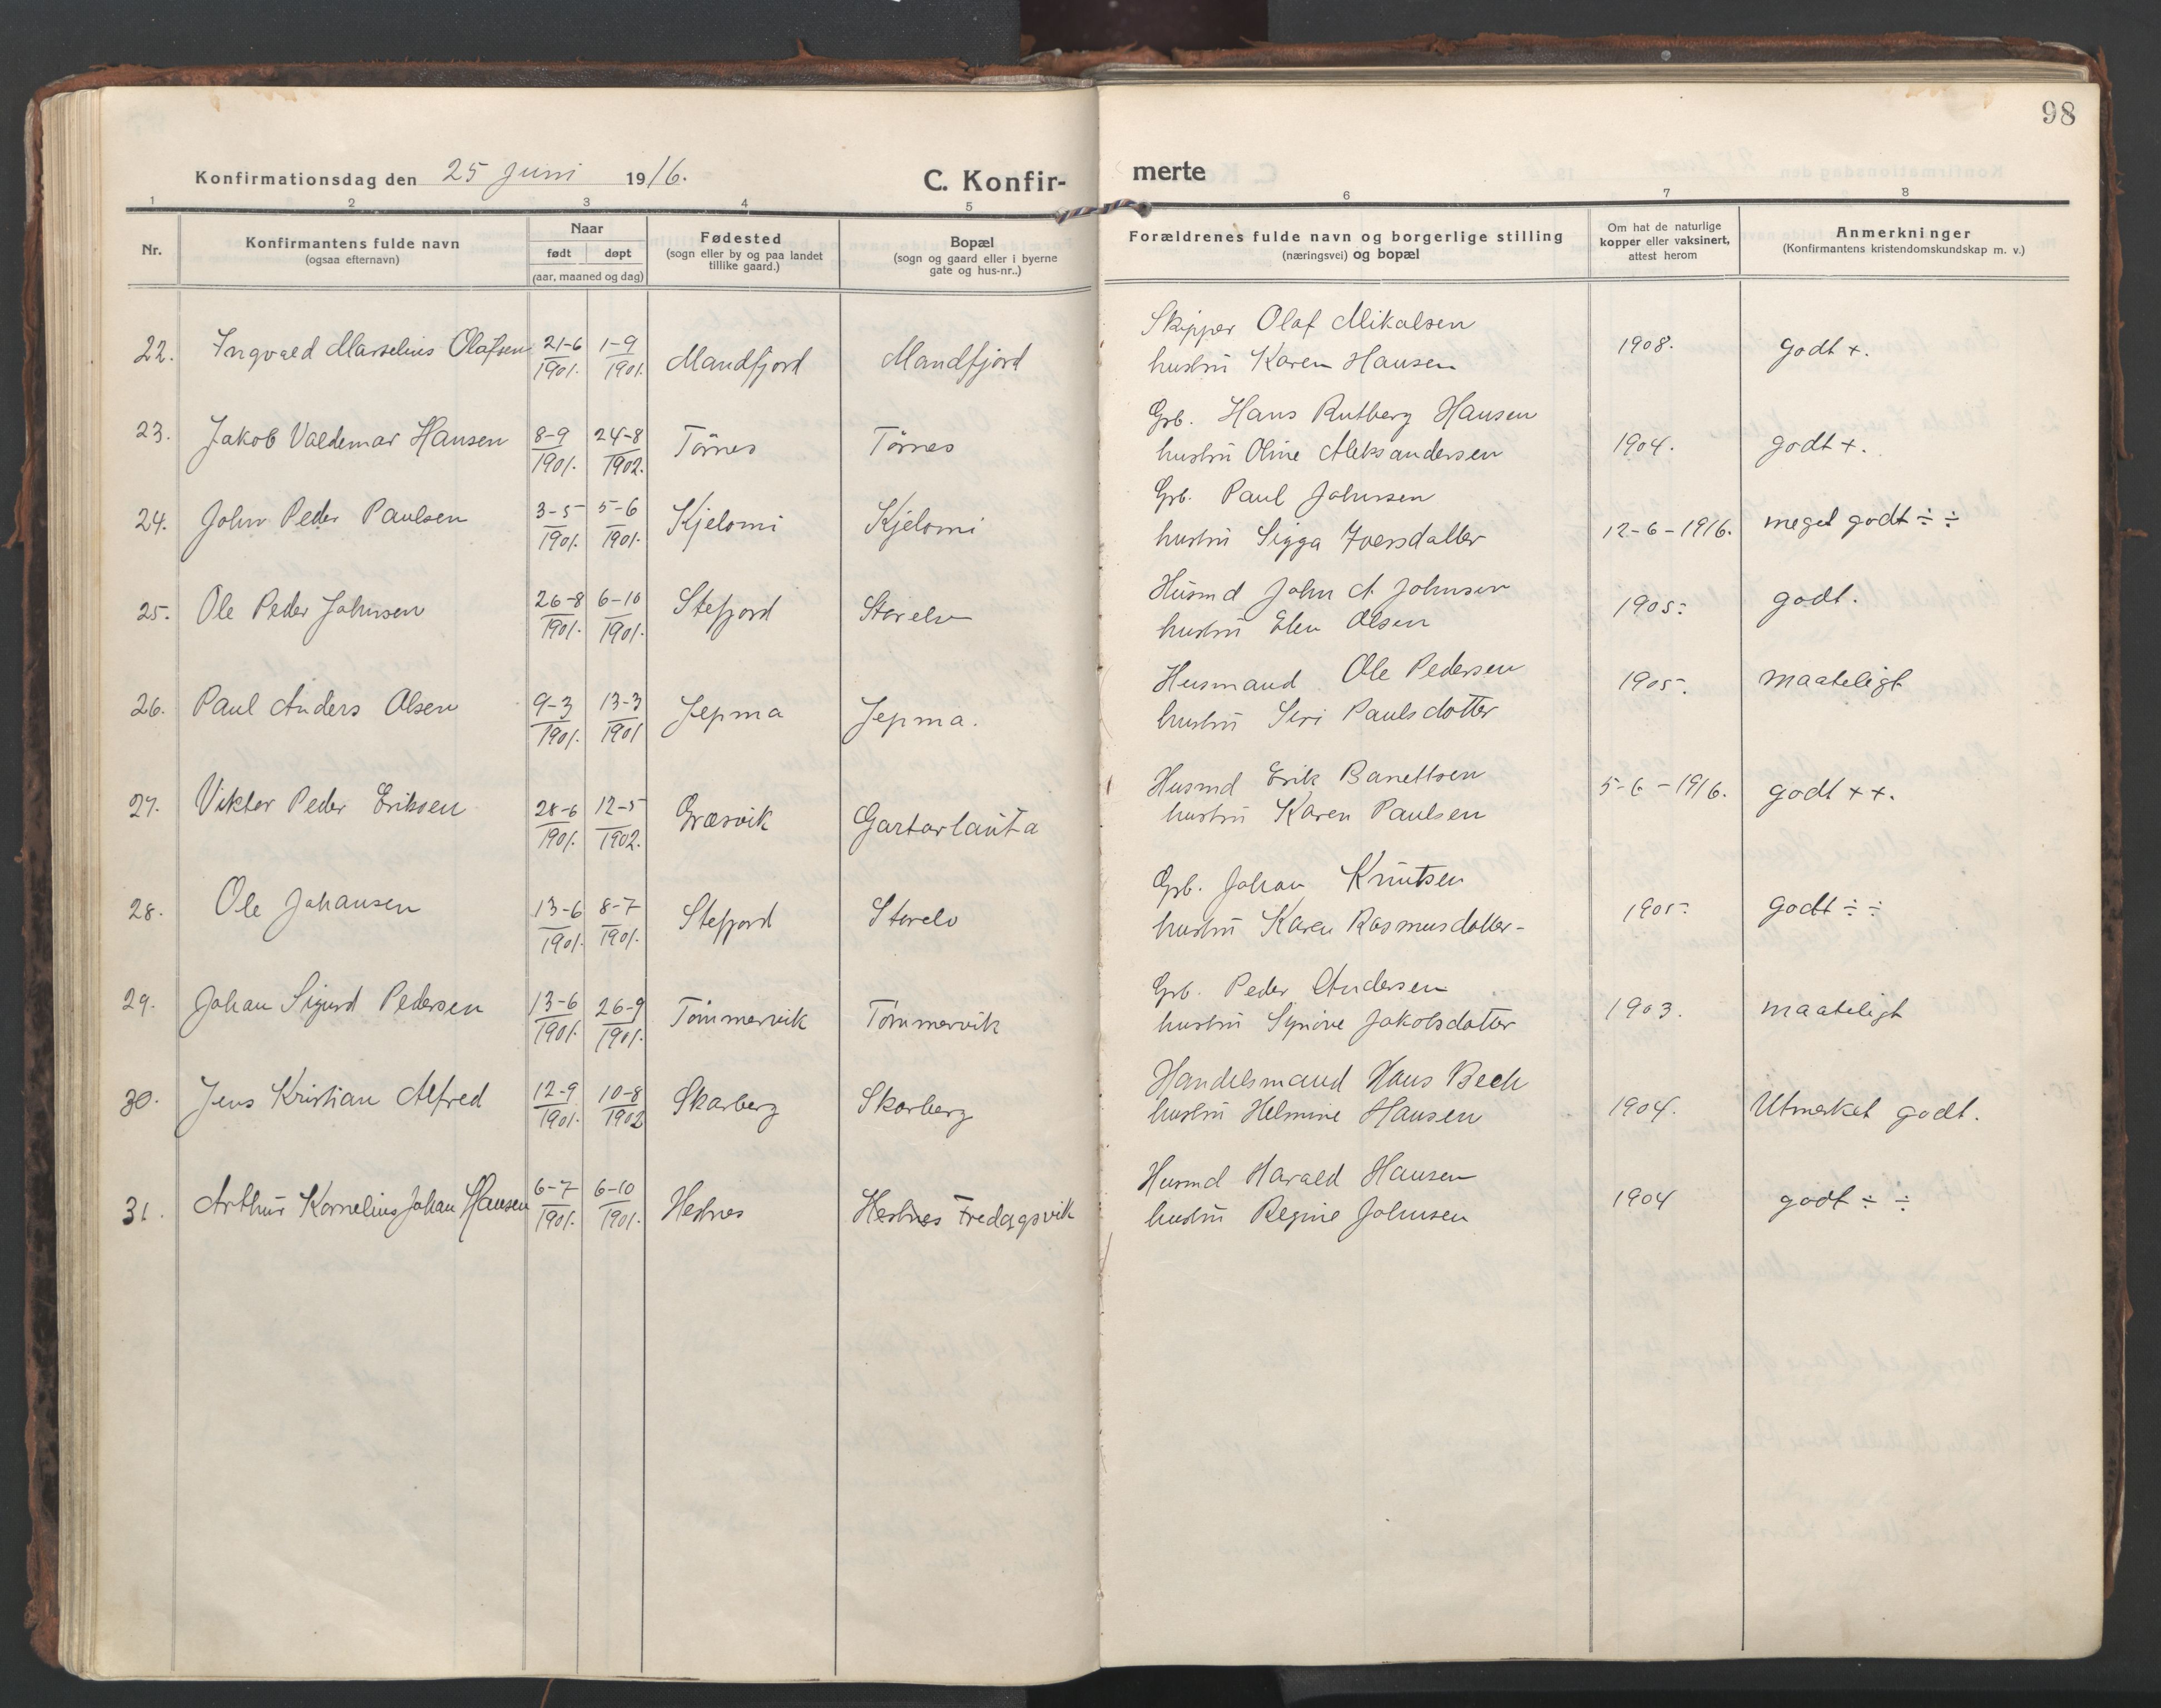 98
Konfirmationsdag den 25 Juni 1916.
C. Konfir-
merte
1 2 3 4 5 6 7 8
Nr.
Konfirmantens fulde navn
(ogsaa efternavn)
Naar
født døpt
(aar, maaned og dag)
Fødested
(sogn eller by og paa landet
tillike gaard.)
Bopæl
(sogn og gaard eller i byerne
gate og hus-nr..)
Forældrenes fulde navn og borgerlige stilling
(næringsvei) og bopæl
Om hat de naturlige
kopper eller vaksinert,
attest herom
Anmerkninger
(Konfirmantens kristendomskundskap m. v.)
22. Ingvald Marselius Olafsen 21-6 1901. 1-9 1901. Mandfjord Mandfjord Skipper Olaf Mikalsen
hustrü Karen Hansen 1908. godt +.
23. Jakob Valdemar Hansen 8-9 1901. 24-8 1902. Törnes Törnes Grb. Hans Rutberg Hansen
hustrü Oline Aleksandersen 1904. godt +.
24. John Peder Paulsen 3-5 1901. 5-6 1901. Kjelomi Kjelomi Grb. Paul Johnsen
hustrü Sigga Iversdatter 12-6-1916. meget godt ÷ ÷
25. Ole Peder Johnsen 26-8 1901. 6-10 1901. Stefjord Storelv Husmd John A Johnsen
hustrü Elen Olsen 1905. godt.
26. Paul Anders Olsen 9-3 1901. 13-3 1901 Jepma Jepma. Husmand Ole Pedersen
hustrü Siri Paulsdotter 1905. maateligt
27. Viktor Peder Eriksen 28-6 1901. 12-5 1902. Græsvik Gartarlaüta Husmd Erik Banettsen
hustrü Karen Paulsen 5-6-1916. godt ++.
28. Ole Johansen 13-6 1901. 8-7 1901. Stefjord Storelv Grb. Johan Knütsen
hustrü Karen Rasmusdatter- 1905. godt ÷ ÷
29. Johan Sigurd Pedersen 13-6 1901. 26-9 1901. Tömmervik Tömmervik Grb. Peder Andersen
hustrü Synöve Jakobsdatter 1903. maateligt
30. Jens Kristian Alfred 12-9 1901. 10-8 1902 Skarberg Skarberg Handelsmand Hans Bech
hustrü Helmine Hansen 1904. Utmerket godt.
31. Arthur Kornelius Johan Hansen 6-7 1901. 6-10 1901. Hestnes Hestnes Fredagsvik Husmd Harald Hansen
hustrü Regine Johnsen 1904 godt ÷ ÷